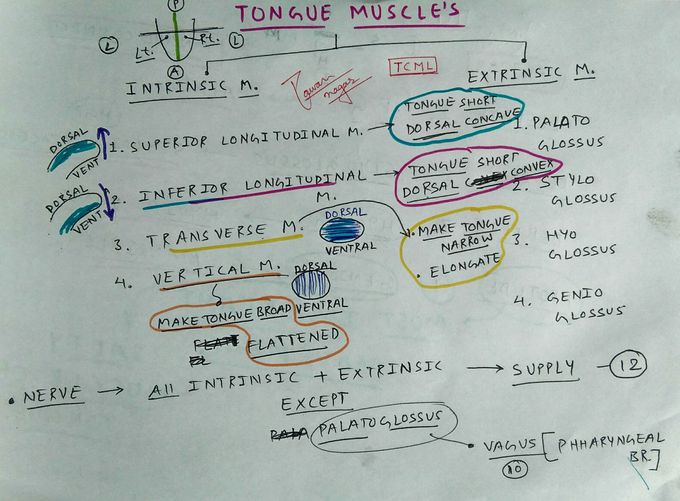 TONGUE MUSCLE'S
P
L
Lt.
Rt.
L
A
TCML
INTRINSIC M.
EXTRINSIC M.
Pawan
nagar
TONGUE SHORT
DORSAL CONCAVE
DORSAL
VENT
1. SUPERIOR LONGITUDINAL M.
1. PALATO
GLOSSUS
DORSAL
VENT
2. INFERIOR LONGITUDINAL
M.
TONGUE SHORT
DORSAL CONVEX
2. STYLO
GLOSSUS
3. TRANSVERSE M.
DORSAL
VENTRAL
. MAKE TONGUE
NARROW
. ELONGATE
3. HYO
GLOSSUS
4. VERTICAL M.
DORSAL
VENTRAL
4. GENIO
GLOSSUS
MAKE TONGUE BROAD
FLATTENED
• NERVE → All INTRINSIC + EXTRINSIC → SUPPLY - 12
EXCEPT
PALATOGLOSSUS
• VAGUS [PHHARYNGEAL
10
BR.]